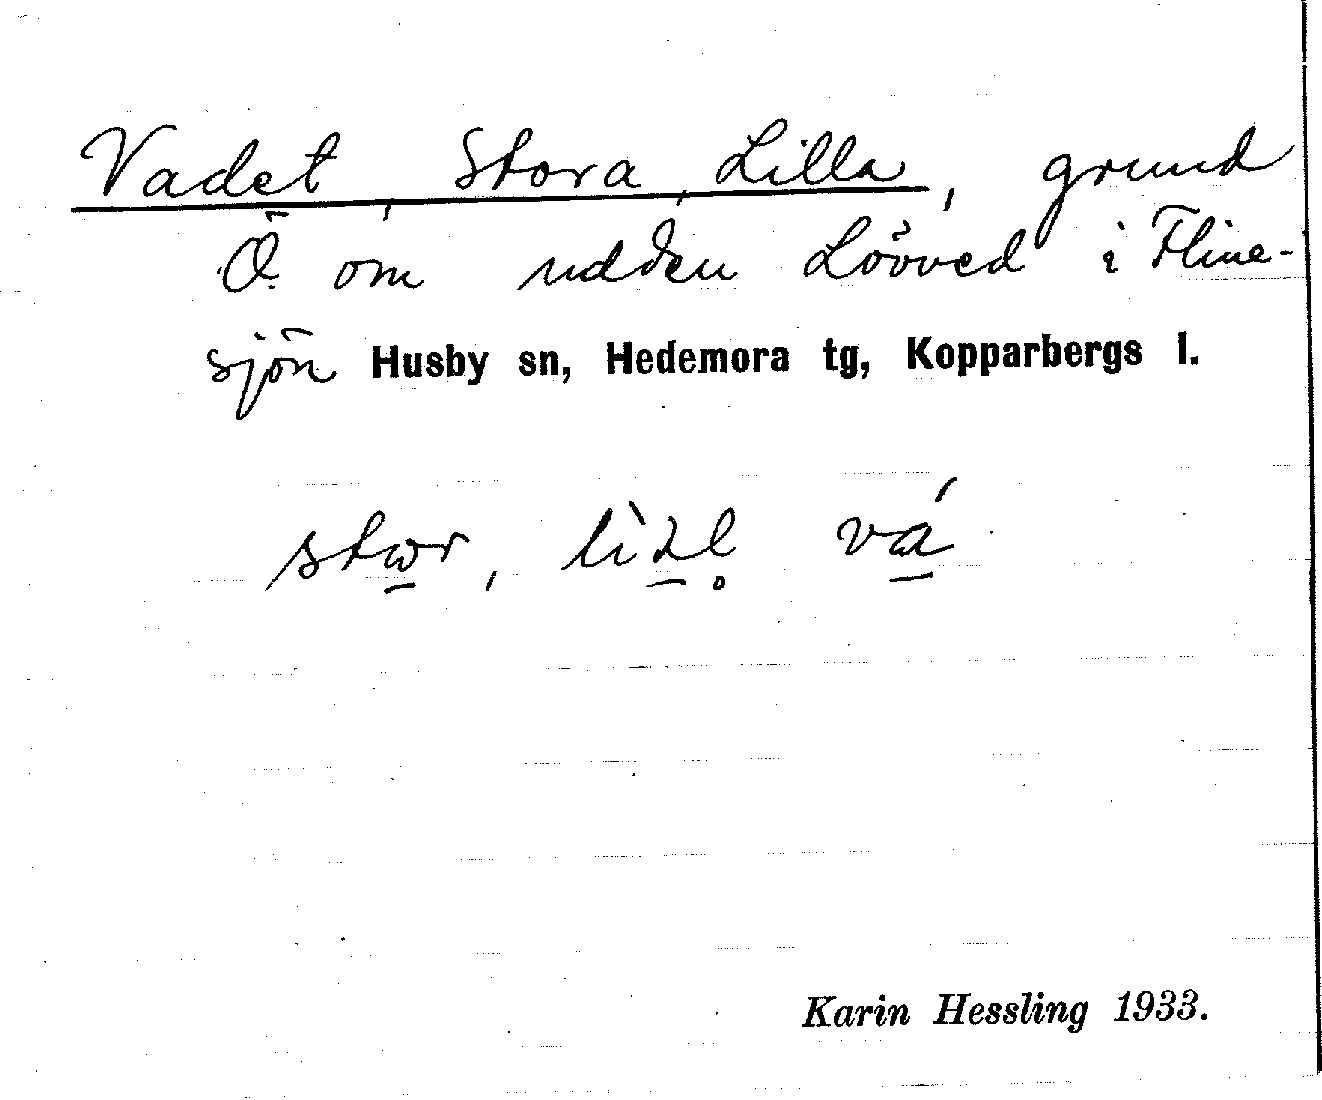 Vadet, Stora, Lilla, grund
Ö. om udden Lövved i Fline-
sjön Husby sn, Hedemora tg, Kopparbergs l.
stωr, lìƨl̥ vá
Karin Hessling 1933.